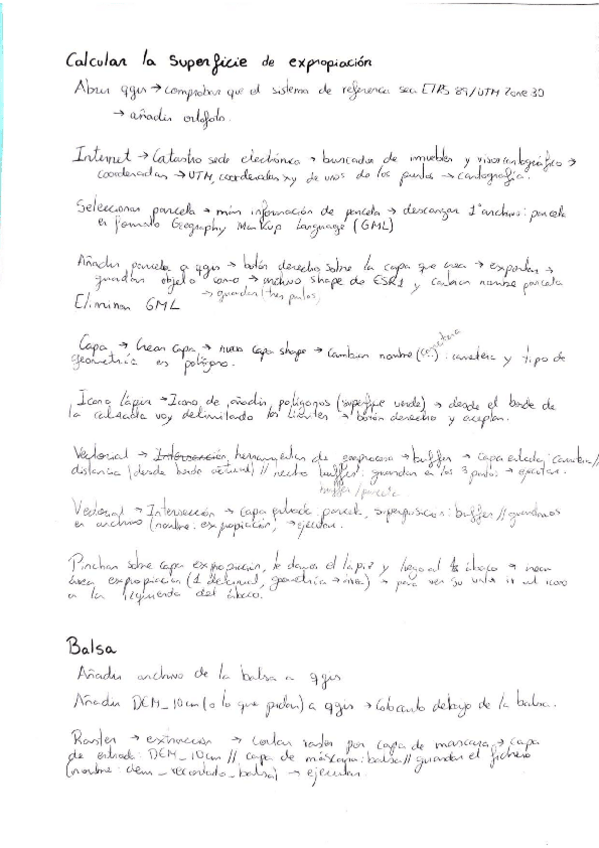 Calcular la superficie de expropiación
Abrir qgis → comprobar que el sistema de referencia sea ETRS 89/UTM Zone 30
→ añadir ortofoto.
Internet → Catastro sede electrónica → buscador de inmuebles y visor cartográfico →
coordenadas → UTM, coordenadas xy de unos de los puntos → cartografía.
Seleccionar parcela → más información de parcela → descargar 1º archivo: parcela
en formato Geography Markup Language (GML)
Añadir parcela a qgis → botón derecho sobre la capa que crea → exportar →
guardar objeto como → archivo shape de ESRI y cambiar nombre parcela
→ guardar (tres puntos)
Eliminar GML
Capa → Crear capa → nueva capa shape → cambiar nombre (...): carretera y tipo de
carretera
geometría en polígono.
Icono lápiz → Icono de añadir polígonos (superfície verde) → desde el borde de
la calzada voy delimitando los → botón derecho y aceptar.
Vectorial → Intersección, herramientas de geoproceso → buffer → capa entrada: carretera//
distancia (desde borde) // hecho buffer: guardar en los 3 puntos → ejecutar.
buffer/parcela
Vectorial → Intersección → capa entrada: parcela, superposición: buffer // guardamos
en archivo (nombre: expropiación) → ejecutar.
Pinchar sobre capa expropiación, le damos al lápiz y luego al ábaco → crear
área expropiación (1 decimal, geometría → área) → para ver su valor ir al icono
a la izquierda del ábaco.
Balsa
Añadir archivo de la balsa a qgis
Añadir DEM_10cm (o lo que pidan) a qgis → colocarlo debajo de la balsa.
Raster → extracción → cortar raster por capa de mascara → capa
de entrada: DEM_10cm // capa de máscara: balsa // guardar el fichero
(nombre: dem_recortado_balsa) → ejecutar.